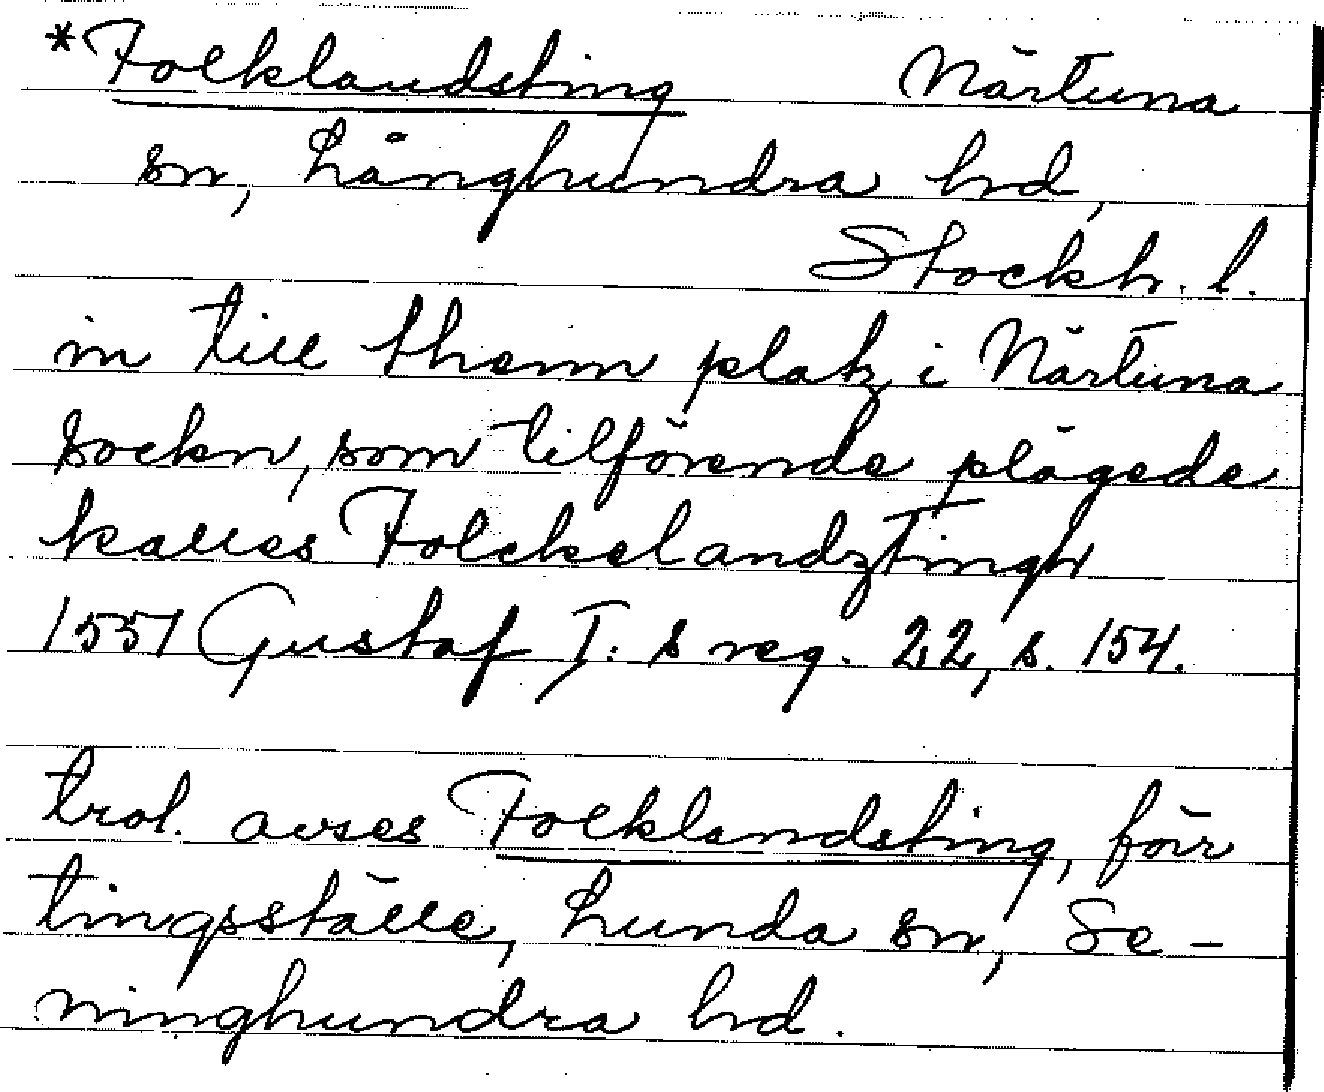 *Folklandsting Närtuna
sn, Långhundra hd,
Stockh. l.
in till thenn platz i Närtuna
sockn, som tilförende plägede
kalles Folckelandztingh
1551 Gustaf I:s reg. 22, s. 154.
trol. avses Folklandsting, förr
tingsställe, Lunda sn, Se-
minghundra hd.